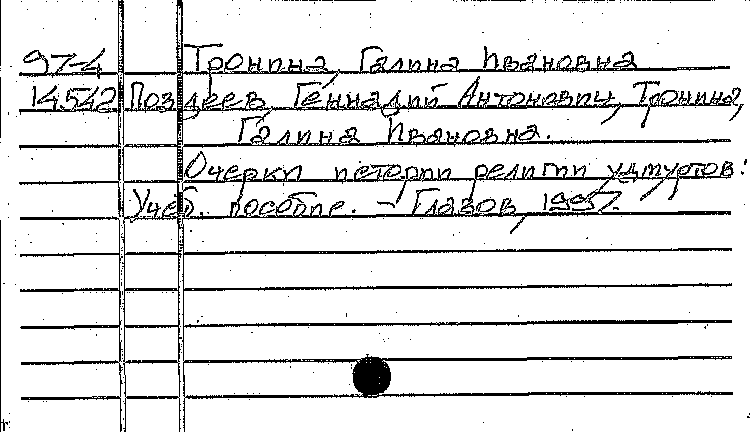 97-4 Тронина, Галина Ивановна
14542 Поздеев, Геннадий Антонович, Тронина,
Галина Ивановна.
Очерки истории религии удмуртов:
Учеб. пособие. - Глазов, 1997.